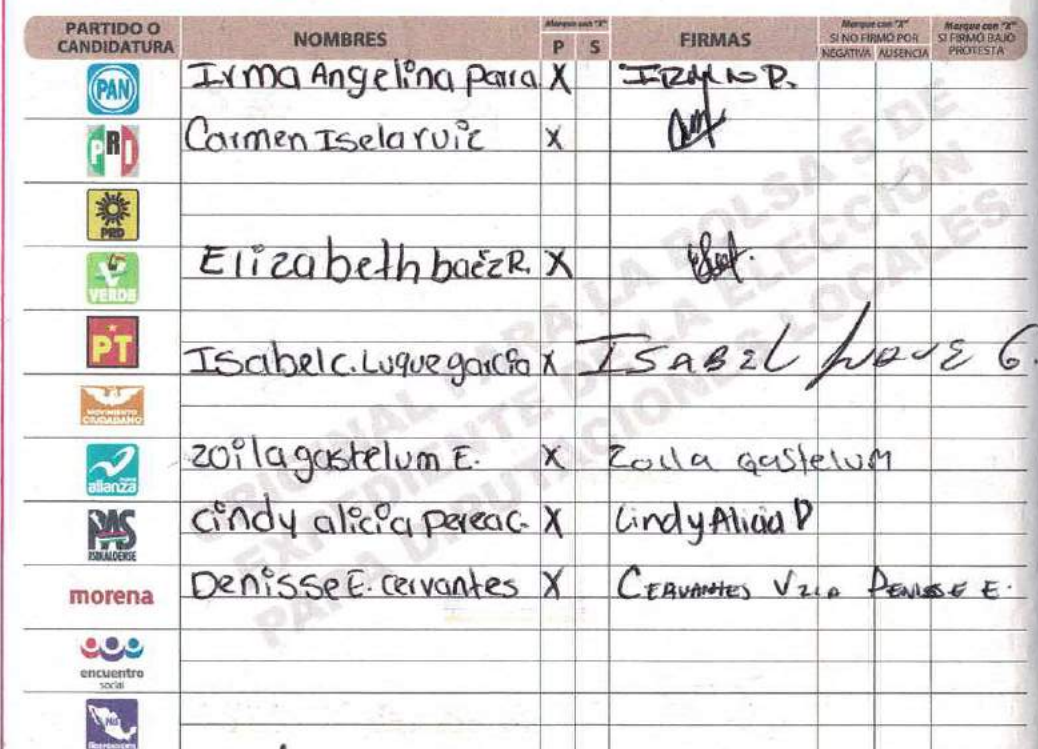 PARTIDO O CANDIDATURA NOMBRES Marque con "X" P S FIRMAS Marque con "X" SI NO FIRMÓ POR NEGATIVA AUSENCIA Marque con "X" SI FIRMÓ BAJO PROTESTA
PAN Irma Angelina Parra X
PRI Carmen Isela ruiz X
PRD
VERDE Elizabeth baézR. X
PT Isabel c. Luque garcia X ISABEL G.
MOVIMIENTO CIUDADANO
alianza zoila gastelum E. X Zoila gastelum
PAS SINALOENSE cindy alicia pereac. X Cindy Alicia P
morena Denisse E. cervantes X CERVANTES DENISSE E.
encuentro social
ORIGINAL PARA LA BOLSA 5 DE
EXPEDIENTE DE LA ELECCIÓN
PARA DIPUTACIONES LOCALES